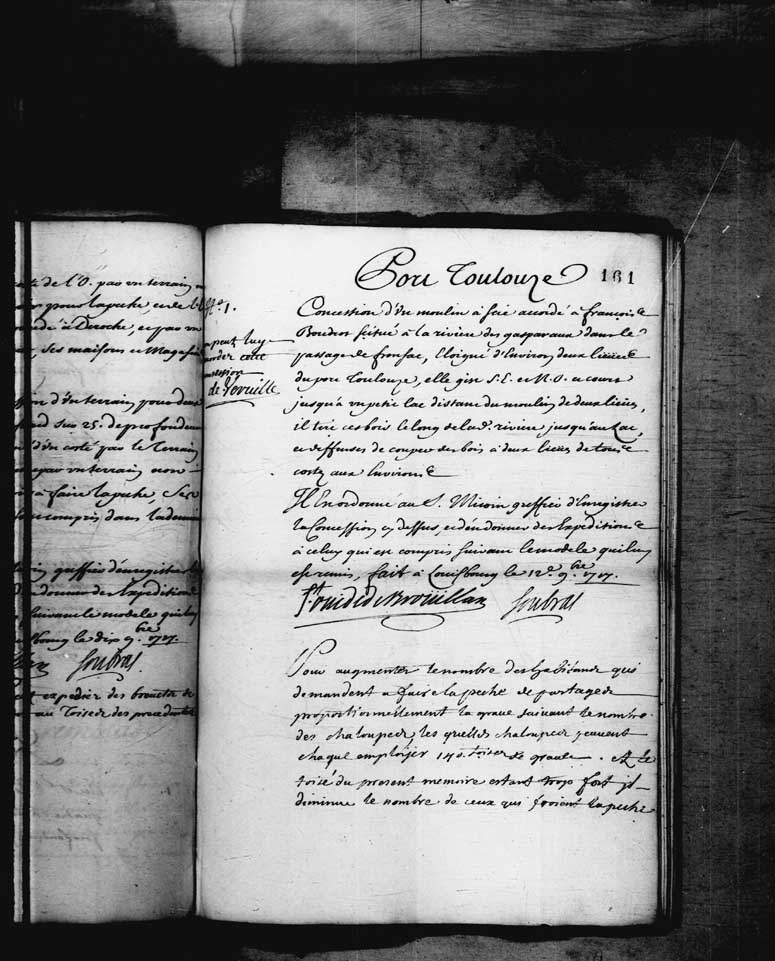 de l'O. par un terrain
pour la peche, et de l'E
à Deroche, et par un
ses maisons et Magasins
d'un terrain pour deux
sur 25. de profondeur
d'un costé par le Terrain
par un terrain non
à faire la peche, Ses
compris dans la demie
greffier d'enregistrer
donner des Expeditions
Suivant le modele qui luy
bourg le dix 9.bre 1717.
Soubras
expedier des brevets de
au toisé des precedents
Port Toulouze 161
Nº 1.
peut luy
accorder cette
concession
de Verville
Concession d'un moulin à Scie accordé à françois
Boudrot Scitué à la riviere des gasparaux dans le
passage de fronsac, Eloigné d'Environ deux lieues
du port Toulouze, elle gist S.E. et N.O. et court
jusqu'à un petit lac distant du moulin de deux lieües,
il tire ces bois le long de lad.e riviere jusqu'au Lac,
et deffenses de couper des bois à deux lieues de tous
costez aux Environs
Il Est ordonné au S. Micoin greffier d'Enregistrer
la Concession cy dessus, et d'en donner des Expeditions
à celuy qui est compris Suivant le modele qui luy
est remis, fait à Louisbourg le 12.e 9.bre 1717.
St Ovide de Brouillan Soubras
Pour augmenter le nombre des habitants qui
demandent a faire la peche de partager
proportionnellement la grave suivant le nombre
des chaloupes, les quelles chaloupes peuvent
chaque emploijer 140. toises de grave. et le
toisé du present memoire estant trop fort il
diminue le nombre de ceux qui feroient la peche